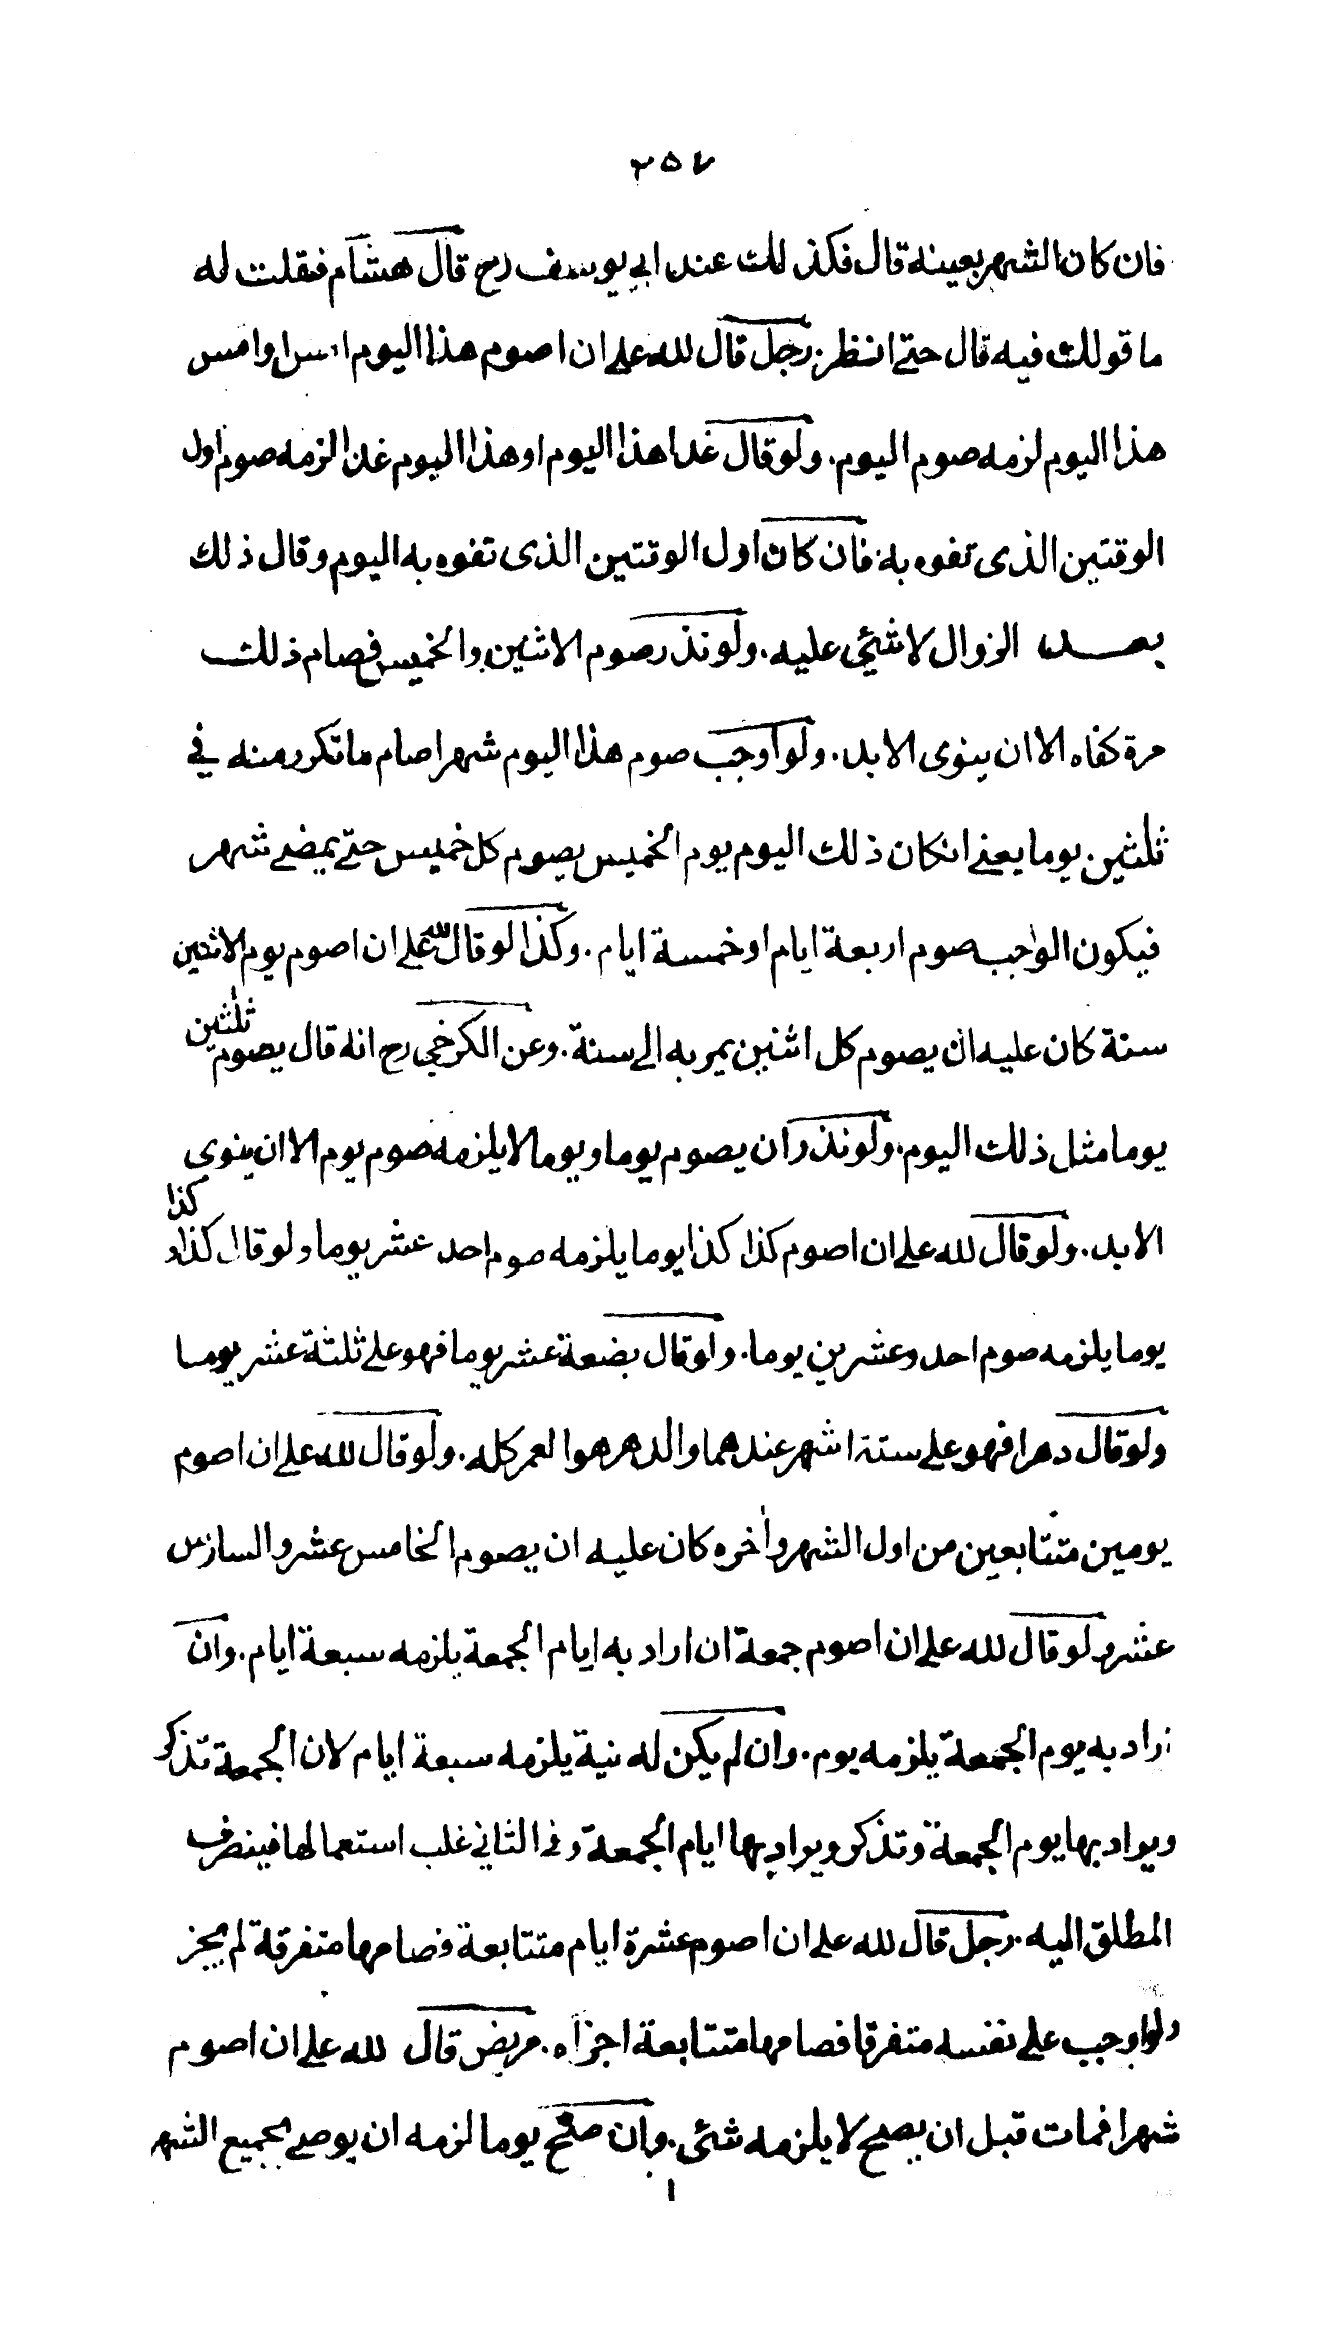 ٢٥٧
فان كان الشهر بعينه قال فكذلك عند ابي يوسف رح قال هشام فقلت له
ما قولك فيه قال حتے انظر. رجل قال لله علے ان اصوم هذا اليوم امس او امس
هذا اليوم لزمه صوم اليوم. ولو قال غدا هذا اليوم او هذا اليوم غدا لزمه صوم اول
الوقتين الذى تفوه به فان كان اول الوقتين الذى تفوه به اليوم وقال ذلك
بعد الزوال لا شئي عليه. ولو نذر صوم الاثنين والخميس فصام ذلك
مرة كفاه الا ان ينوى الابد. ولو اوجب صوم هذا اليوم شهرا صام ما تكرر منه في
ثلٰثين يوما يعنے انكان ذلك اليوم يوم الخميس يصوم كل خميس حتے يمضے شهر
فيكون الواجب صوم اربعة ايام او خمسة ايام. وكذا لو قال لله علے ان اصوم يوم الاثنين
سنة كان عليه ان يصوم كل اثنين يمر به الے سنة. وعن الكرخي رح انه قال يصوم ثلٰثين
يوما مثل ذلك اليوم. ولو نذر ان يصوم يوما ويوما لا يلزمه صوم يوم الا ان ينوى
الابد. ولو قال لله علے ان اصوم كذا كذا يوما يلزمه صوم احد عشر يوما ولو قال كذا و كذا
يوما يلزمه صوم احد وعشرين يوما. ولو قال بضعة عشر يوما فهو علے ثلثة عشر يوما
ولو قال دهرا فهو علے ستة اشهر عندهما والدهر هو العمر كله. ولو قال لله علے ان اصوم
يومين متتابعين من اول الشهر واٰخره كان عليه ان يصوم الخامس عشر والسادس
عشر ولو قال لله علے ان اصوم جمعة ان اراد به ايام الجمعة يلزمه سبعة ايام. وان
اراد به يوم الجمعة يلزمه يوم. وان لم يكن له نية يلزمه سبعة ايام لان الجمعة تذكر
ويراد بها يوم الجمعة وتذكر ويراد بها ايام الجمعة وفي الثاني غلب استعمالها فينصرف
المطلق اليه. رجل قال لله علے ان اصوم عشرة ايام متتابعة فصامها متفرقة لم يجز
ولو اوجب علے نفسه متفرقا فصامها متتابعة اجزاه. مريض قال لله علے ان اصوم
شهرا فمات قبل ان يصح لا يلزمه شئى. وان صح يوما لزمه ان يوصے بجميع الشهر
١